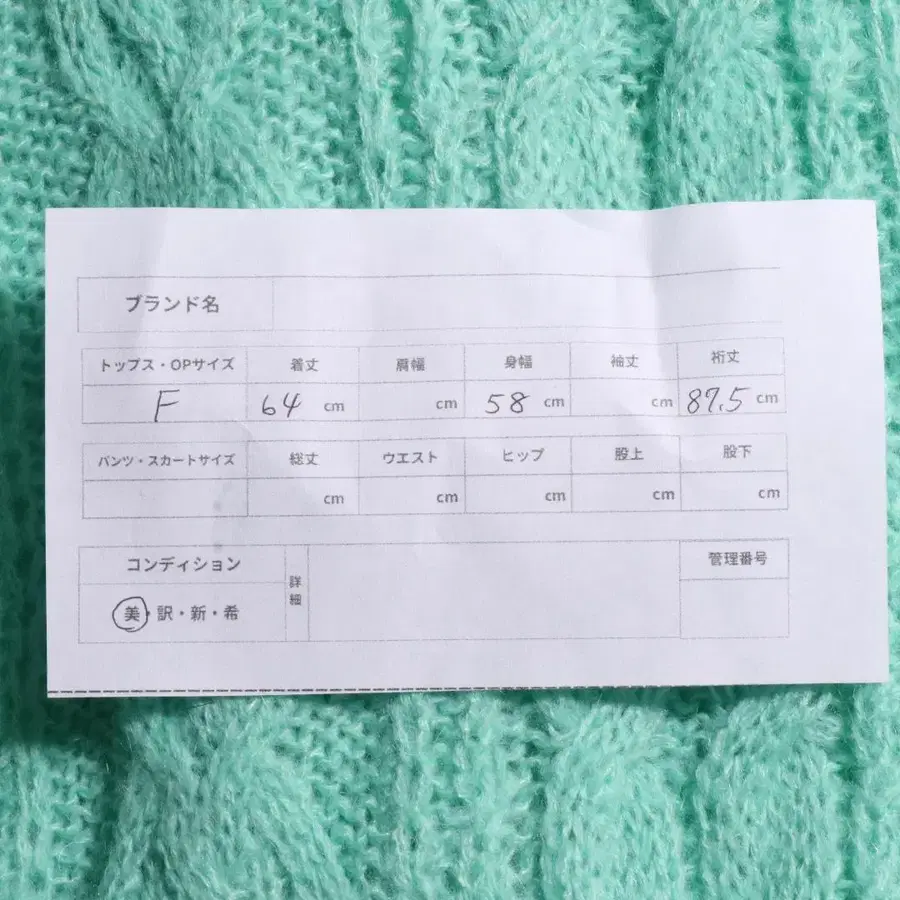 ブランド名
トップス・OPサイズ 着丈 肩幅 身幅 袖丈 裄丈
F 64 cm cm 58 cm cm 87.5 cm
パンツ・スカートサイズ 総丈 ウエスト ヒップ 股上 股下
cm cm cm cm cm
コンディション 詳細 管理番号
美・訳・新・希